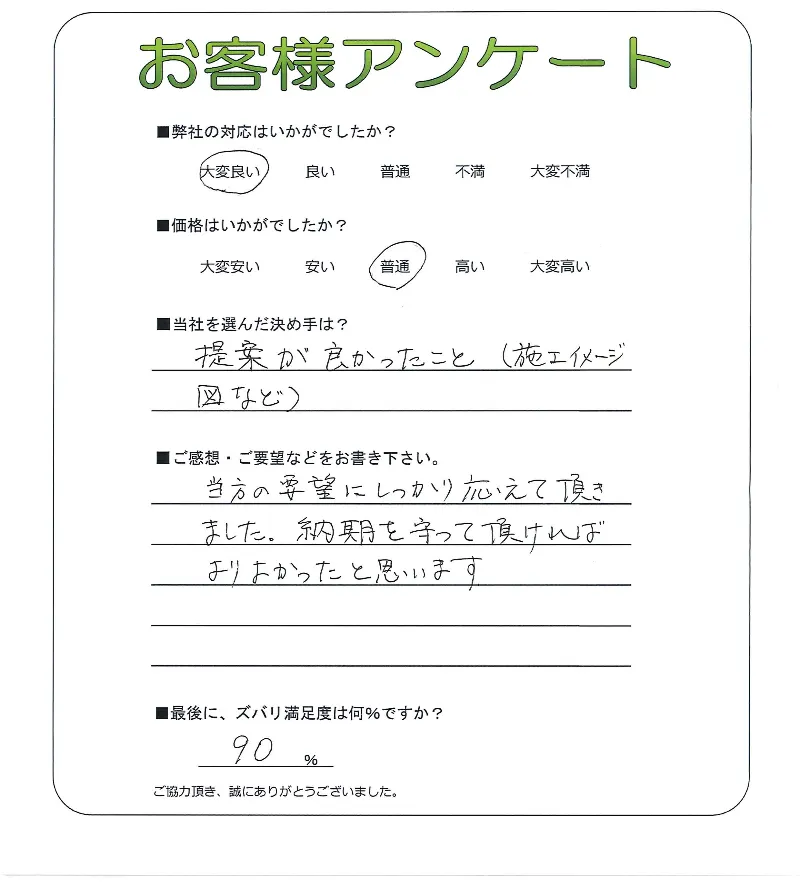 お客様アンケート
■弊社の対応はいかがでしたか？
大変良い 良い 普通 不満 大変不満
■価格はいかがでしたか？
大変安い 安い 普通 高い 大変高い
■当社を選んだ決め手は？
提案が良かったこと（施工イメージ
図など）
■ご感想・ご要望などをお書き下さい。
当方の要望にしっかり応えて頂き
ました。納期を守って頂ければ
よりよかったと思います
■最後に、ズバリ満足度は何％ですか？
90 %
ご協力頂き、誠にありがとうございました。